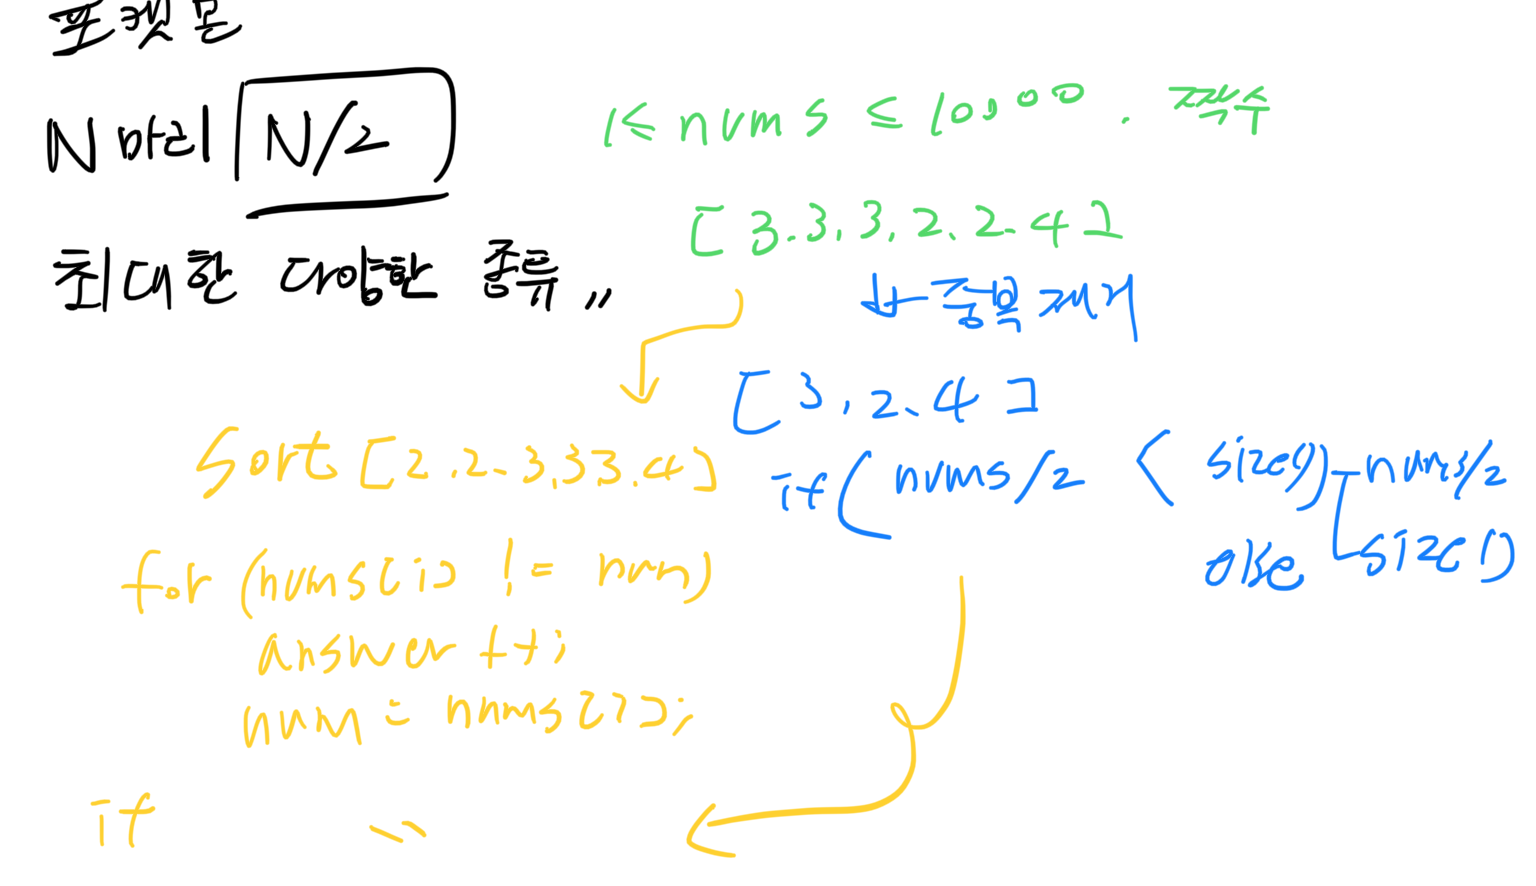 포켓몬
N마리 N/2
최대한 다양한 종류 〃
1 ≤ nums ≤ 10000 . 짝수
[ 3. 3, 3, 2, 2. 4 ]
↓ 중복 제거
[ 3, 2, 4 ]
if ( nums/2 < size()) nums/2
else size()
Sort [ 2. 2. 3, 3 3. 4 ]
for (nums[i] != num)
answer ++;
num = nums[i];
if 〃